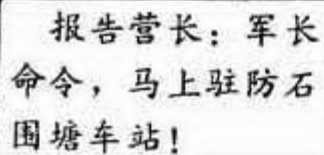 报告营长：军长
命令，马上驻防石
围塘车站！